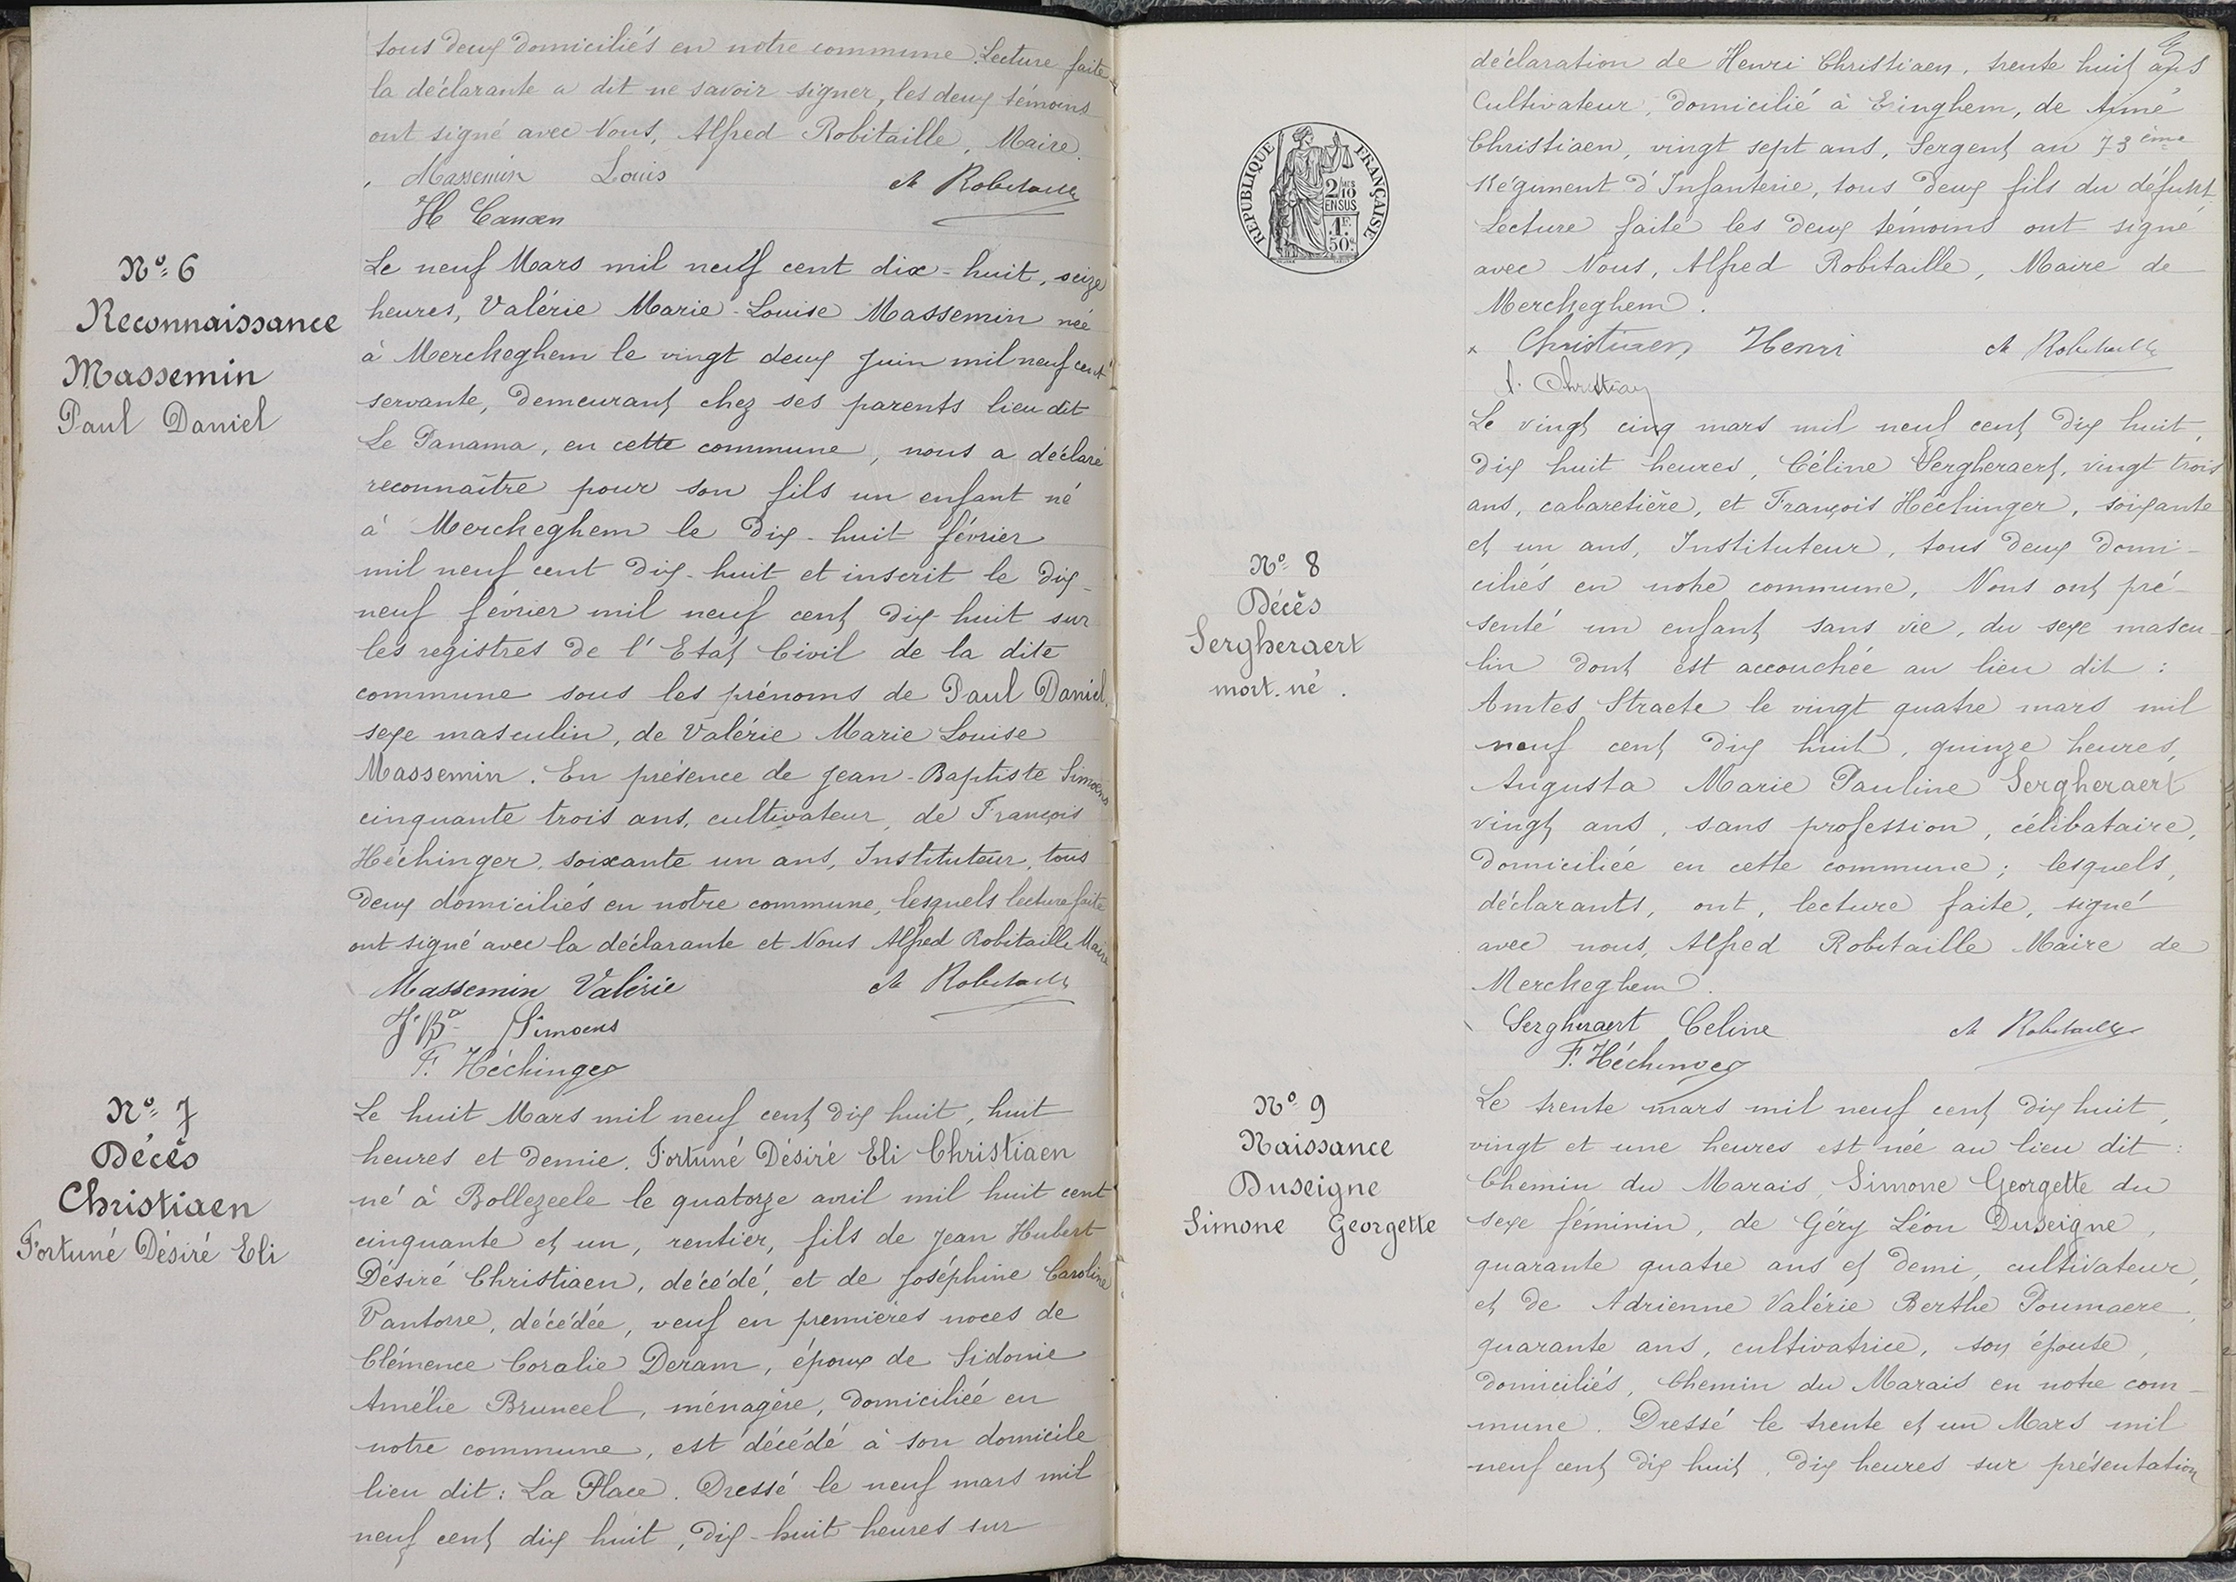 tous deux domiciliés en notre commune. Lecture faite
la déclarante a dit ne savoir signer, les deux témoins
ont signé avec Nous, Alfred Robitaille, Maire.
Massemin Louis
A Robitaille
H
N° 6
Reconnaissance
Massemin
Paul Daniel
Le neuf Mars mil neuf cent dix-huit, seize
heures, Valérie Marie-Louise Massemin née
à Merckeghem le vingt deux Juin mil neuf cent
servante, demeurant chez ses parents lieu dit
Le Panama, en cette commune, nous a déclaré
reconnaître pour son fils un enfant né
à Merckeghem le dix-huit février
mil neuf cent dix-huit et inscrit le dix-
neuf février mil neuf cent dix-huit sur
les registres de l'Etat Civil de la dite
commune sous les prénoms de Paul Daniel,
sexe masculin, de Valérie Marie Louise
Massemin. En présence de Jean-Baptiste Simoens
cinquante trois ans, cultivateur, de François
Héchinger, soixante un ans, Instituteur, tous
deux domiciliés en notre commune, lesquels lecture faite
ont signé avec la déclarante et Nous Alfred Robitaille Maire
Massemin Valérie
A Robitaille
J. Bte Simoens
F. Héchinger
N° 7
Décès
Christiaen
Fortuné Désiré Eli
Le huit Mars mil neuf cent dix huit, huit
heures et demie. Fortuné Désiré Eli Christiaen
né à Bollezeele le quatorze avril mil huit cent
cinquante et un, rentier, fils de Jean Hubert
Désiré Christiaen, décédé, et de Joséphine Caroline
Vantorre, décédée, veuf en premières noces de
Clémence Coralie Deram, époux de Sidonie
Amélie Bruneel, ménagère, domiciliée en
notre commune, est décédé à son domicile
lieu dit : La Place. Dressé le neuf mars mil
neuf cent dix huit, dix-huit heures sur
déclaration de Henri Christiaen, trente huit ans
Cultivateur, domicilié à Eringhem, de Aimé
Christiaen, vingt sept ans, Sergent au 73ème
Régiment d'Infanterie, tous deux fils du défunt
Lecture faite les deux témoins ont signé
avec Nous, Alfred Robitaille, Maire de
Merckeghem.
RÉPUBLIQUE FRANÇAISE
2/10
EN SUS
1F.
50c
x Christiaen Henri
A Robitaille
A. Christiaen
N° 8
Décès
Sergheraert
mort-né.
Le vingt cinq mars mil neuf cent dix huit,
dix huit heures, Céline Sergheraert, vingt trois
ans, cabaretière, et François Héchinger, soixante
et un ans, Instituteur, tous deux domi-
ciliés en notre commune, Nous ont pré-
senté un enfant sans vie, du sexe mascu-
lin dont est accouchée au lieu dit :
Amtes Straete le vingt quatre mars mil
neuf cent dix huit, quinze heures,
Augusta Marie Pauline Sergheraert
vingt ans, sans profession, célibataire,
domiciliée en cette commune ; lesquels,
déclarants, ont, lecture faite, signé
avec nous, Alfred Robitaille Maire de
Merckeghem.
Sergheraert Celine
A Robitaille
F. Héchinger
N° 9
Naissance
Duseigne
Simone Georgette
Le trente mars mil neuf cent dix huit,
vingt et une heures est née au lieu dit :
Chemin du Marais, Simone Georgette du
sexe féminin, de Géry Léon Duseigne,
quarante quatre ans et demi, cultivateur,
et de Adrienne Valérie Berthe Poumaere,
quarante ans, cultivatrice, son épouse,
domiciliés, Chemin du Marais en notre com-
mune. Dressé le trente et un Mars mil
neuf cent dix huit, dix heures sur présentation